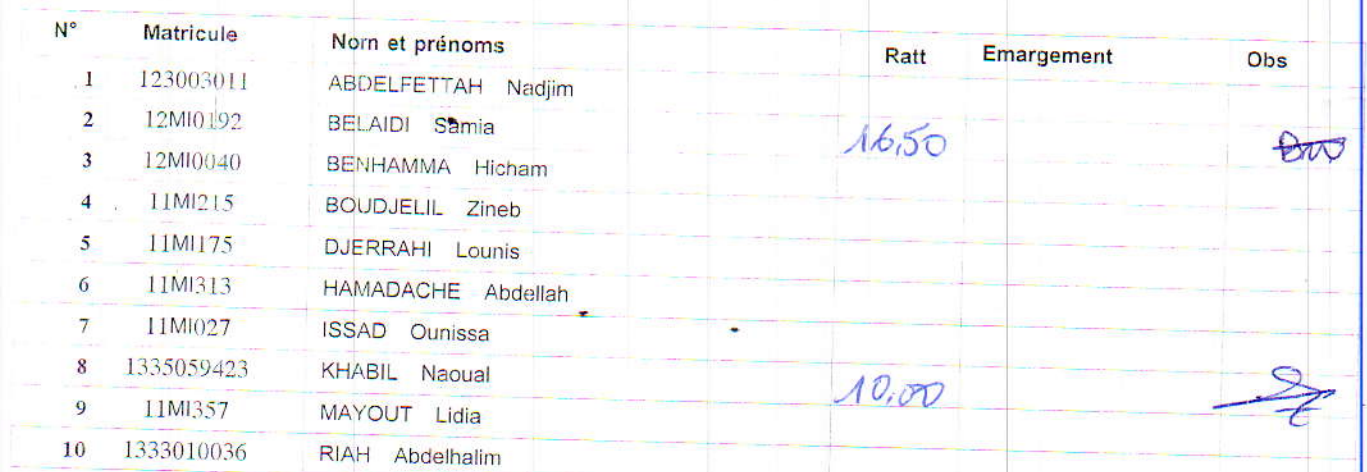 N° Matricule Nom et prénoms Ratt Emargement Obs
1 123003011 ABDELFETTAH Nadjim
2 12MI0192 BELAIDI Samia 16,50
3 12MI0040 BENHAMMA Hicham
4 11MI215 BOUDJELIL Zineb
5 11MI175 DJERRAHI Lounis
6 11MI313 HAMADACHE Abdellah
7 11MI027 ISSAD Ounissa
8 1335059423 KHABIL Naoual 10,00
9 11MI357 MAYOUT Lidia
10 1333010036 RIAH Abdelhalim